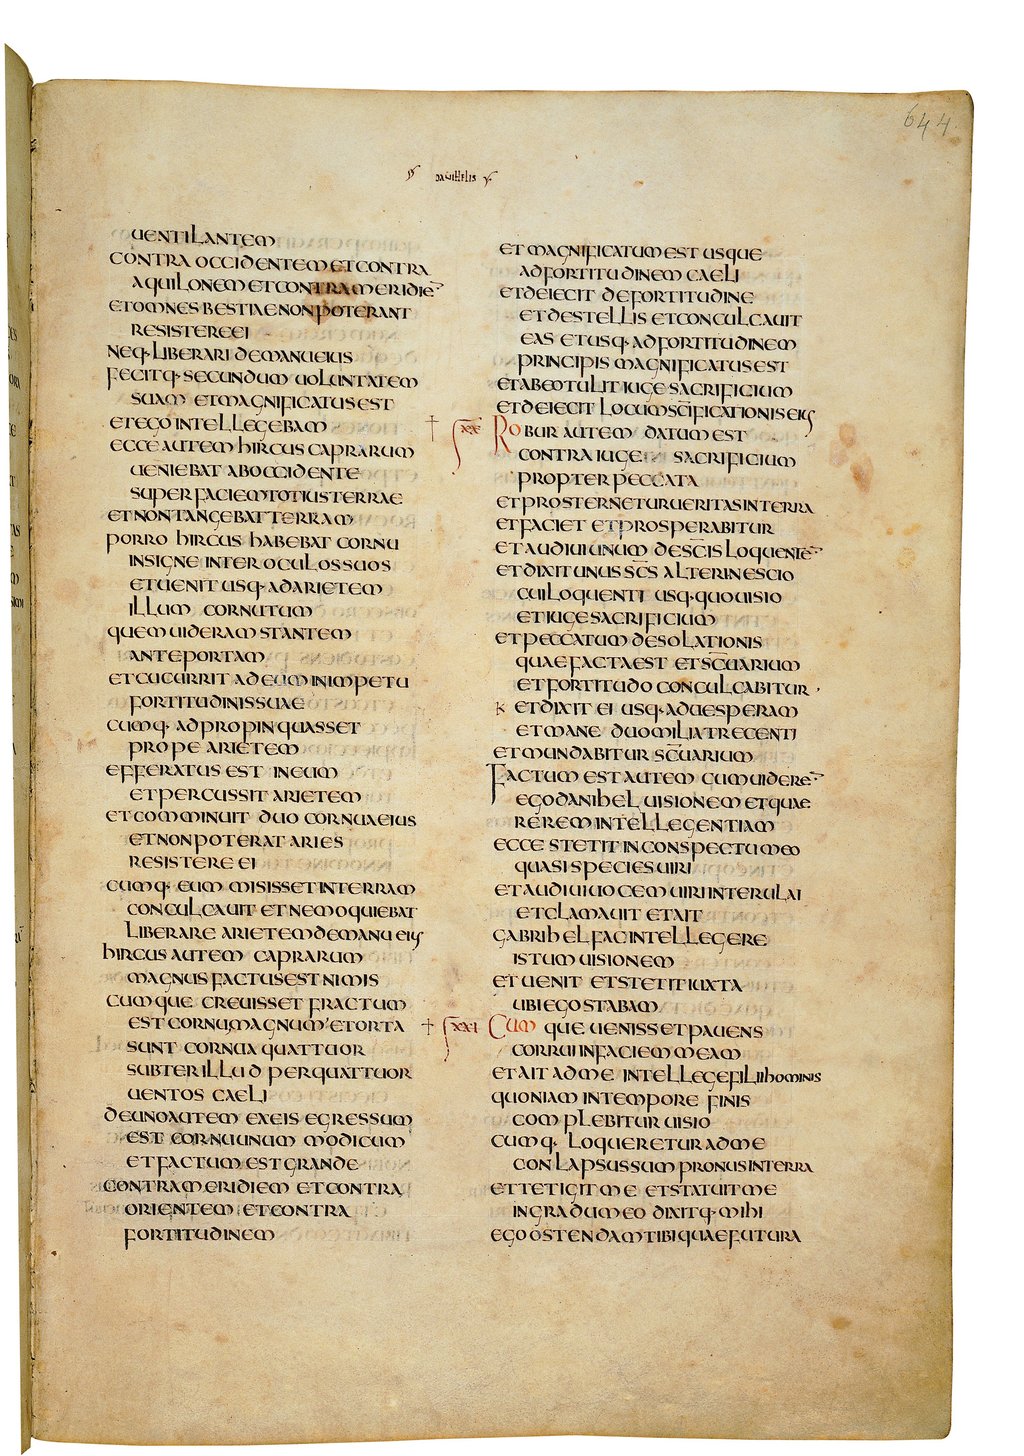 644
DANIHELIS
UENTILANTEM
CONTRA OCCIDENTEM ET CONTRA
AQUILONEM ET CONTRA MERIDIĒ
ET OMNES BESTIAE NON POTERANT
RESISTERE EI
NEQ· LIBERARI DE MANU EIUS
FECITQ· SECUNDUM UOLUNTATEM
SUAM ET MAGNIFICATUS EST
ET EGO INTELLEGEBAM
ECCE AUTEM HIRCUS CAPRARUM
UENIEBAT AB OCCIDENTE
SUPER FACIEM TOTIUS TERRAE
ET NON TANGEBAT TERRAM
PORRO HIRCUS HABEBAT CORNU
INSIGNE INTER OCULOS SUOS
ET UENIT USQ· AD ARIETEM
ILLUM CORNUTUM
QUEM UIDERAM STANTEM
ANTE PORTAM
ET CUCURRIT AD EUM IN IMPETU
FORTITUDINIS SUAE
CUMQ· ADPROPINQUASSET
PROPE ARIETEM
EFFERATUS EST IN EUM
ET PERCUSSIT ARIETEM
ET COMMINUIT DUO CORNUA EIUS
ET NON POTERAT ARIES
RESISTERE EI
CUMQ· EUM MISISSET IN TERRAM
CONCULCAUIT ET NEMO QUIEBAT
LIBERARE ARIETEM DE MANU EIUS
HIRCUS AUTEM CAPRARUM
MAGNUS FACTUS EST NIMIS
CUMQUE CREUISSET FRACTUM
EST CORNU MAGNUM ET ORTA
SUNT CORNUA QUATTUOR
SUBTER ILLUD PER QUATTUOR
UENTOS CAELI
DE UNO AUTEM EX EIS EGRESSUM
EST CORNU UNUM MODICUM
ET FACTUM EST GRANDE
CONTRA MERIDIEM ET CONTRA
ORIENTEM ET CONTRA
FORTITUDINEM
ET MAGNIFICATUM EST USQUE
AD FORTITUDINEM CAELI
ET DEIECIT DE FORTITUDINE
ET DE STELLIS ET CONCULCAUIT
EAS ET USQ· AD FORTITUDINEM
PRINCIPIS MAGNIFICATUS EST
ET AB EO TULIT IUGE SACRIFICIUM
ET DEIECIT LOCUM SC̄IFICATIONIS EIUS
XX ROBUR AUTEM DATUM EST
CONTRA IUGE SACRIFICIUM
PROPTER PECCATA
ET PROSTERNETUR UERITAS IN TERRA
ET FACIET ET PROSPERABITUR
ET AUDIUI UNUM DE SC̄IS LOQUENTĒ
ET DIXIT UNUS SC̄S ALTERI NESCIO
CUI LOQUENTI USQ· QUO UISIO
ET IUGE SACRIFICIUM
ET PECCATUM DESOLATIONIS
QUAE FACTA EST ET SC̄UARIUM
ET FORTITUDO CONCULCABITUR
K ET DIXIT EI USQ· AD UESPERAM
ET MANE DUO MILIA TRECENTI
ET MUNDABITUR SC̄UARIUM
FACTUM EST AUTEM CUM UIDERĒ
EGO DANIHEL UISIONEM ET QUAE
REREM INTELLEGENTIAM
ECCE STETIT IN CONSPECTU MEO
QUASI SPECIES UIRI
ET AUDIUI UOCEM UIRI INTER ULAI
ET CLAMAUIT ET AIT
GABRIHEL FAC INTELLEGERE
ISTUM UISIONEM
ET UENIT ET STETIT IUXTA
UBI EGO STABAM
XXI CUMQUE UENISSET PAUENS
CORRUI IN FACIEM MEAM
ET AIT AD ME INTELLEGE FILI HOMINIS
QUONIAM IN TEMPORE FINIS
COMPLEBITUR UISIO
CUMQ· LOQUERETUR AD ME
CONLAPSUS SUM PRONUS IN TERRA
ET TETIGIT ME ET STATUIT ME
IN GRADU MEO DIXITQ· MIHI
EGO OSTENDAM TIBI QUAE FUTURA